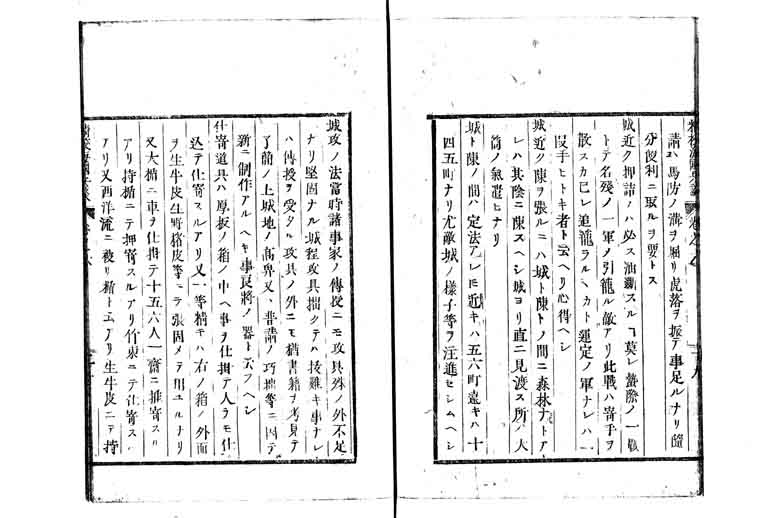 請ハ馬防ノ溝ヲ堀リ虎落ヲ振テ事足ルナリ隨
分便利ニ取ルヲ要トス
城近ク押詰ノハ必ス油斷スルヿ莫レ 籠際ノ一戰
トテ名殘ノ一軍ノ引籠ル敵アリ此戰ハ寄手ヲ
散スカ已レ追籠ラルヘカト運定ノ軍ナレハ一
段手ヒトキ者ト云ヘリ心得ヘシ
城近ク陳ヲ張ルニハ城ト陳トノ間ニ森林ナトア
レハ其陰ニ陳スヘシ城ヨリ直ニ見渡ス所ノ大
筒ノ氣遣ヒナリ
城ト陳ノ間ハ定法アレ𪜈近キハ五六町遠キハ十
四五町ナリ尤敵城ノ樣子等ヲ注進セシムヘシ
城攻ノ法當時諸事家ノ傳授ニモ攻具殊ノ外不足
ナリ堅固ナル城程攻具拙クテハ技難キ事ナレ
ハ傳授ヲ受タル攻具ノ外ニモ猶書籍ヲ考見テ
了簡ノ上城地ノ高卑又ハ普請ノ巧拙等ニ因テ
新ニ制作アルヘキ事良將ノ器ト云フヘシ
仕寄道具ハ厚板ノ箱ノ中ヘ事ヲ仕掛ア人ラモ仕
込テ仕寄スルアリ又一等精キハ右ノ箱ノ外面
ヲ生牛皮生野猪皮等ニテ張固メテ用ユルナリ
又大楯ニ車ヲ仕掛テ十五六人一齋ニ推寄スル
アリ持楯ニテ押寄スルアリ竹束ニテ仕寄スル
アリ又西洋流ニ被リ楯ト云アリ生牛皮ニテ持